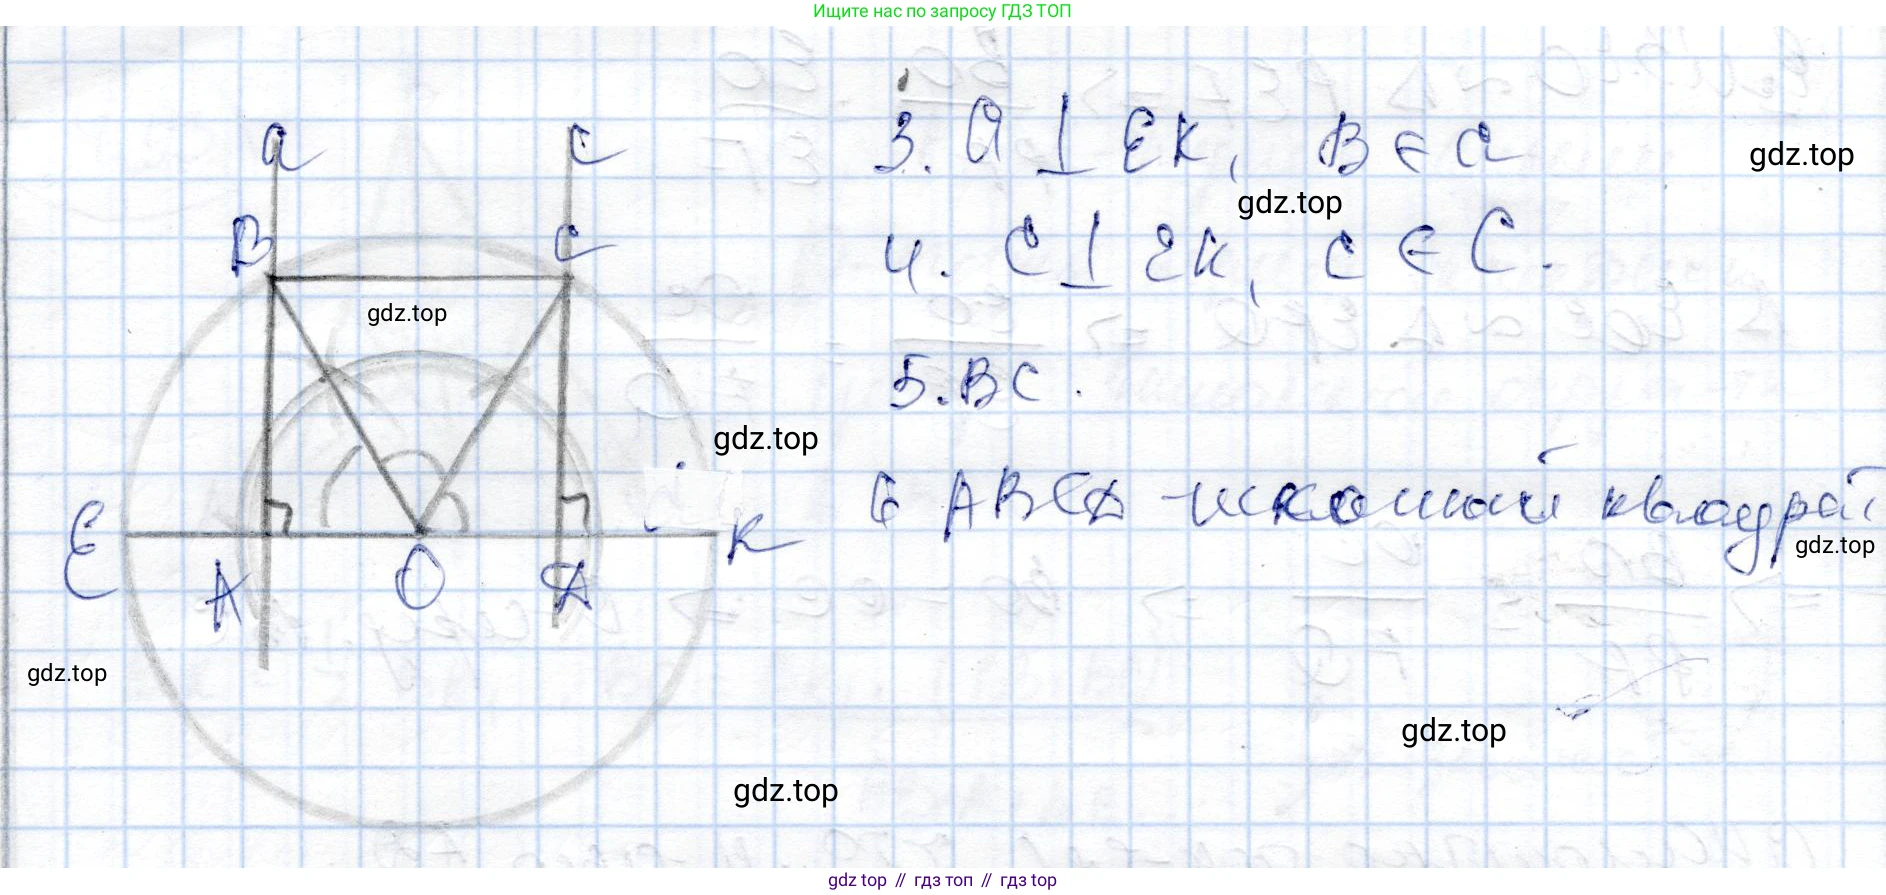 Ищите нас по запросу ГДЗ ТОП
a
c
3. a ⊥ EK, B ∈ a
gdz.top
gdz.top
B
C
4. c ⊥ EK, C ∈ c.
gdz.top
5. BC.
gdz.top
E
K
6 ABCD - искомый квадрат
gdz.top
A
O
D
gdz.top
gdz.top
gdz.top
gdz top // гдз топ // гдз top